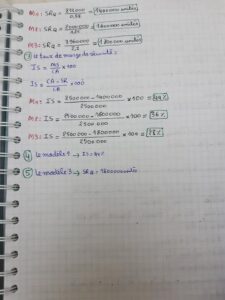 M1: SRQ = 812000 / 0,58 = 1400000 unités
M2: SRQ = = 1600000 unités
M3: SRQ = 3960000 / 2,2 = 1800000 unités
③ le taux de marge de sécurité:
IS = MS / CA × 100
IS = CA - SR / CA × 100
M1: IS = 2500000 - 1400000 / 2500000 × 100 = 44%
M2: IS = 2500000 - 1600000 / 2500000 × 100 = 36%
M3: IS = 2500000 - 1800000 / 2500000 × 100 = 28%
④ le modèle 1 → IS = 44%
⑤ le modèle 3 → SRQ = 1800000 unités